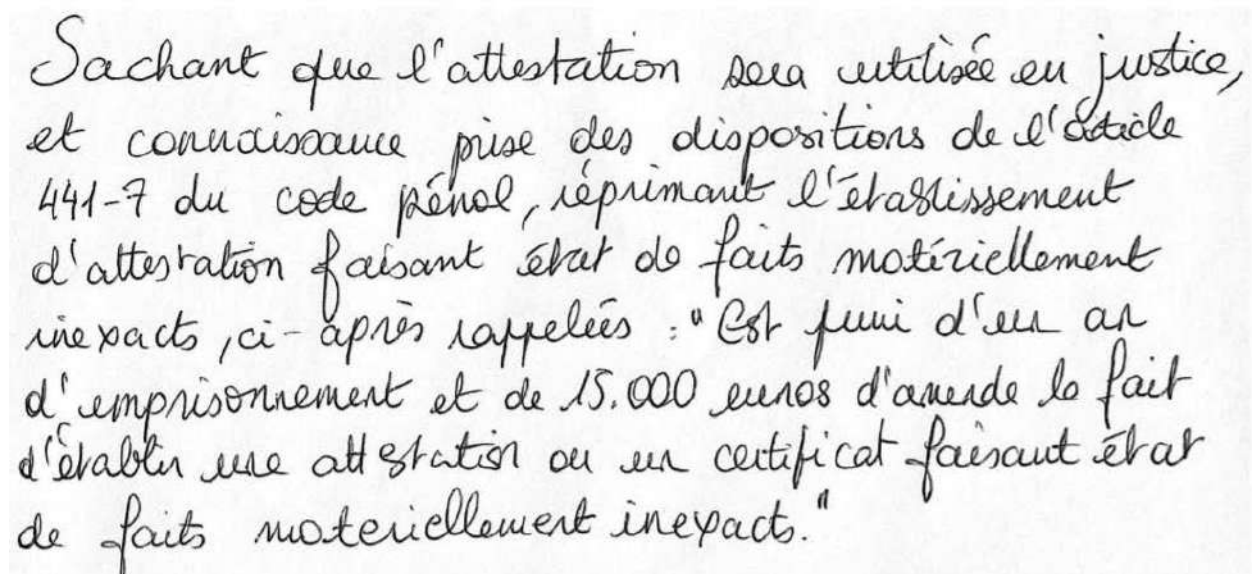 Sachant que l'attestation sera utilisée en justice,
et connaissance prise des dispositions de l'article
441-7 du code pénal, réprimant l'établissement
d'attestation faisant état de faits matériellement
inexacts, ci-après rappelées : "Est puni d'un an
d'emprisonnement et de 15.000 euros d'amende le fait
d'établir une attestation ou un certificat faisant état
de faits materiellement inexacts."